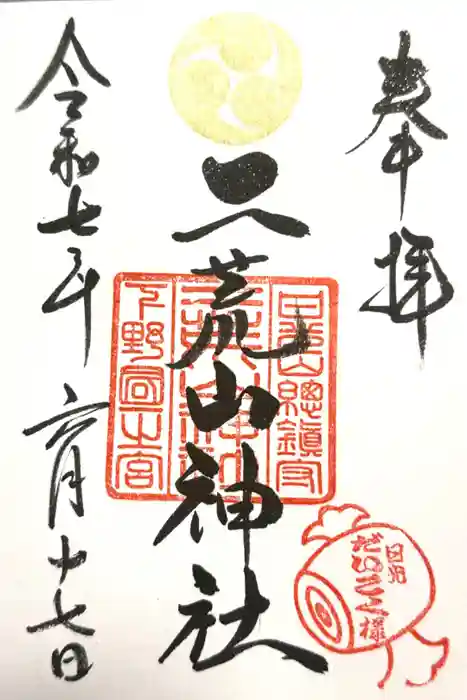 奉拝
二荒山神社
日光山總鎮守
二荒山神社
下野國一之宮
日光
だいこく様
令和七年 六月十七日